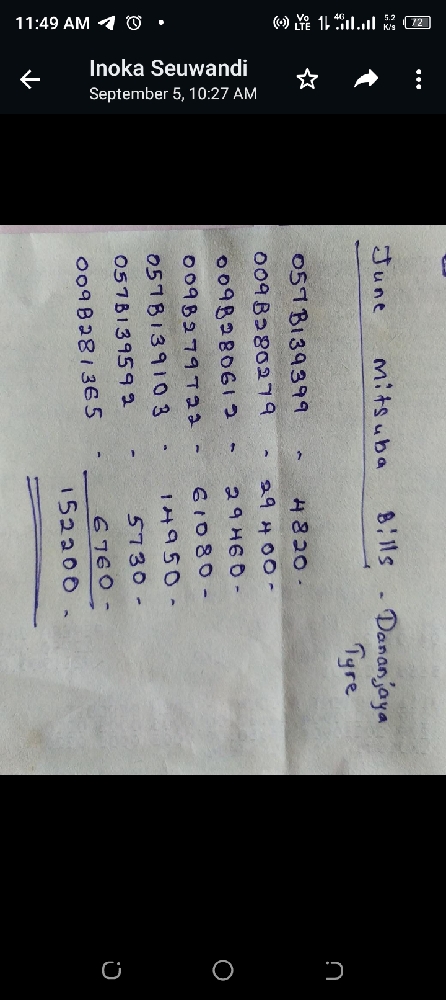 11:49 AM
Vo LTE 4G 5.2 K/s 72
Inoka Seuwandi
September 5, 10:27 AM
June Mitsuba Bills - Dananjaya
Tyre
057B139399 - 4820-
009B280279 - 29400-
009B280612 - 29460-
009B279722 - 61080-
057B139103 - 14950-
057B139592 - 5730-
009B281365 - 6760-
152200-